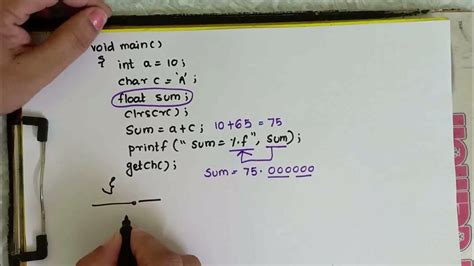 void main()
{ int a = 10 ;
char c = 'A' ;
float sum ;
clrscr() ;
Sum = a+c ; 10+65 = 75
printf ("Sum = %.f", sum) ;
getch() ;
Sum = 75.000000
}